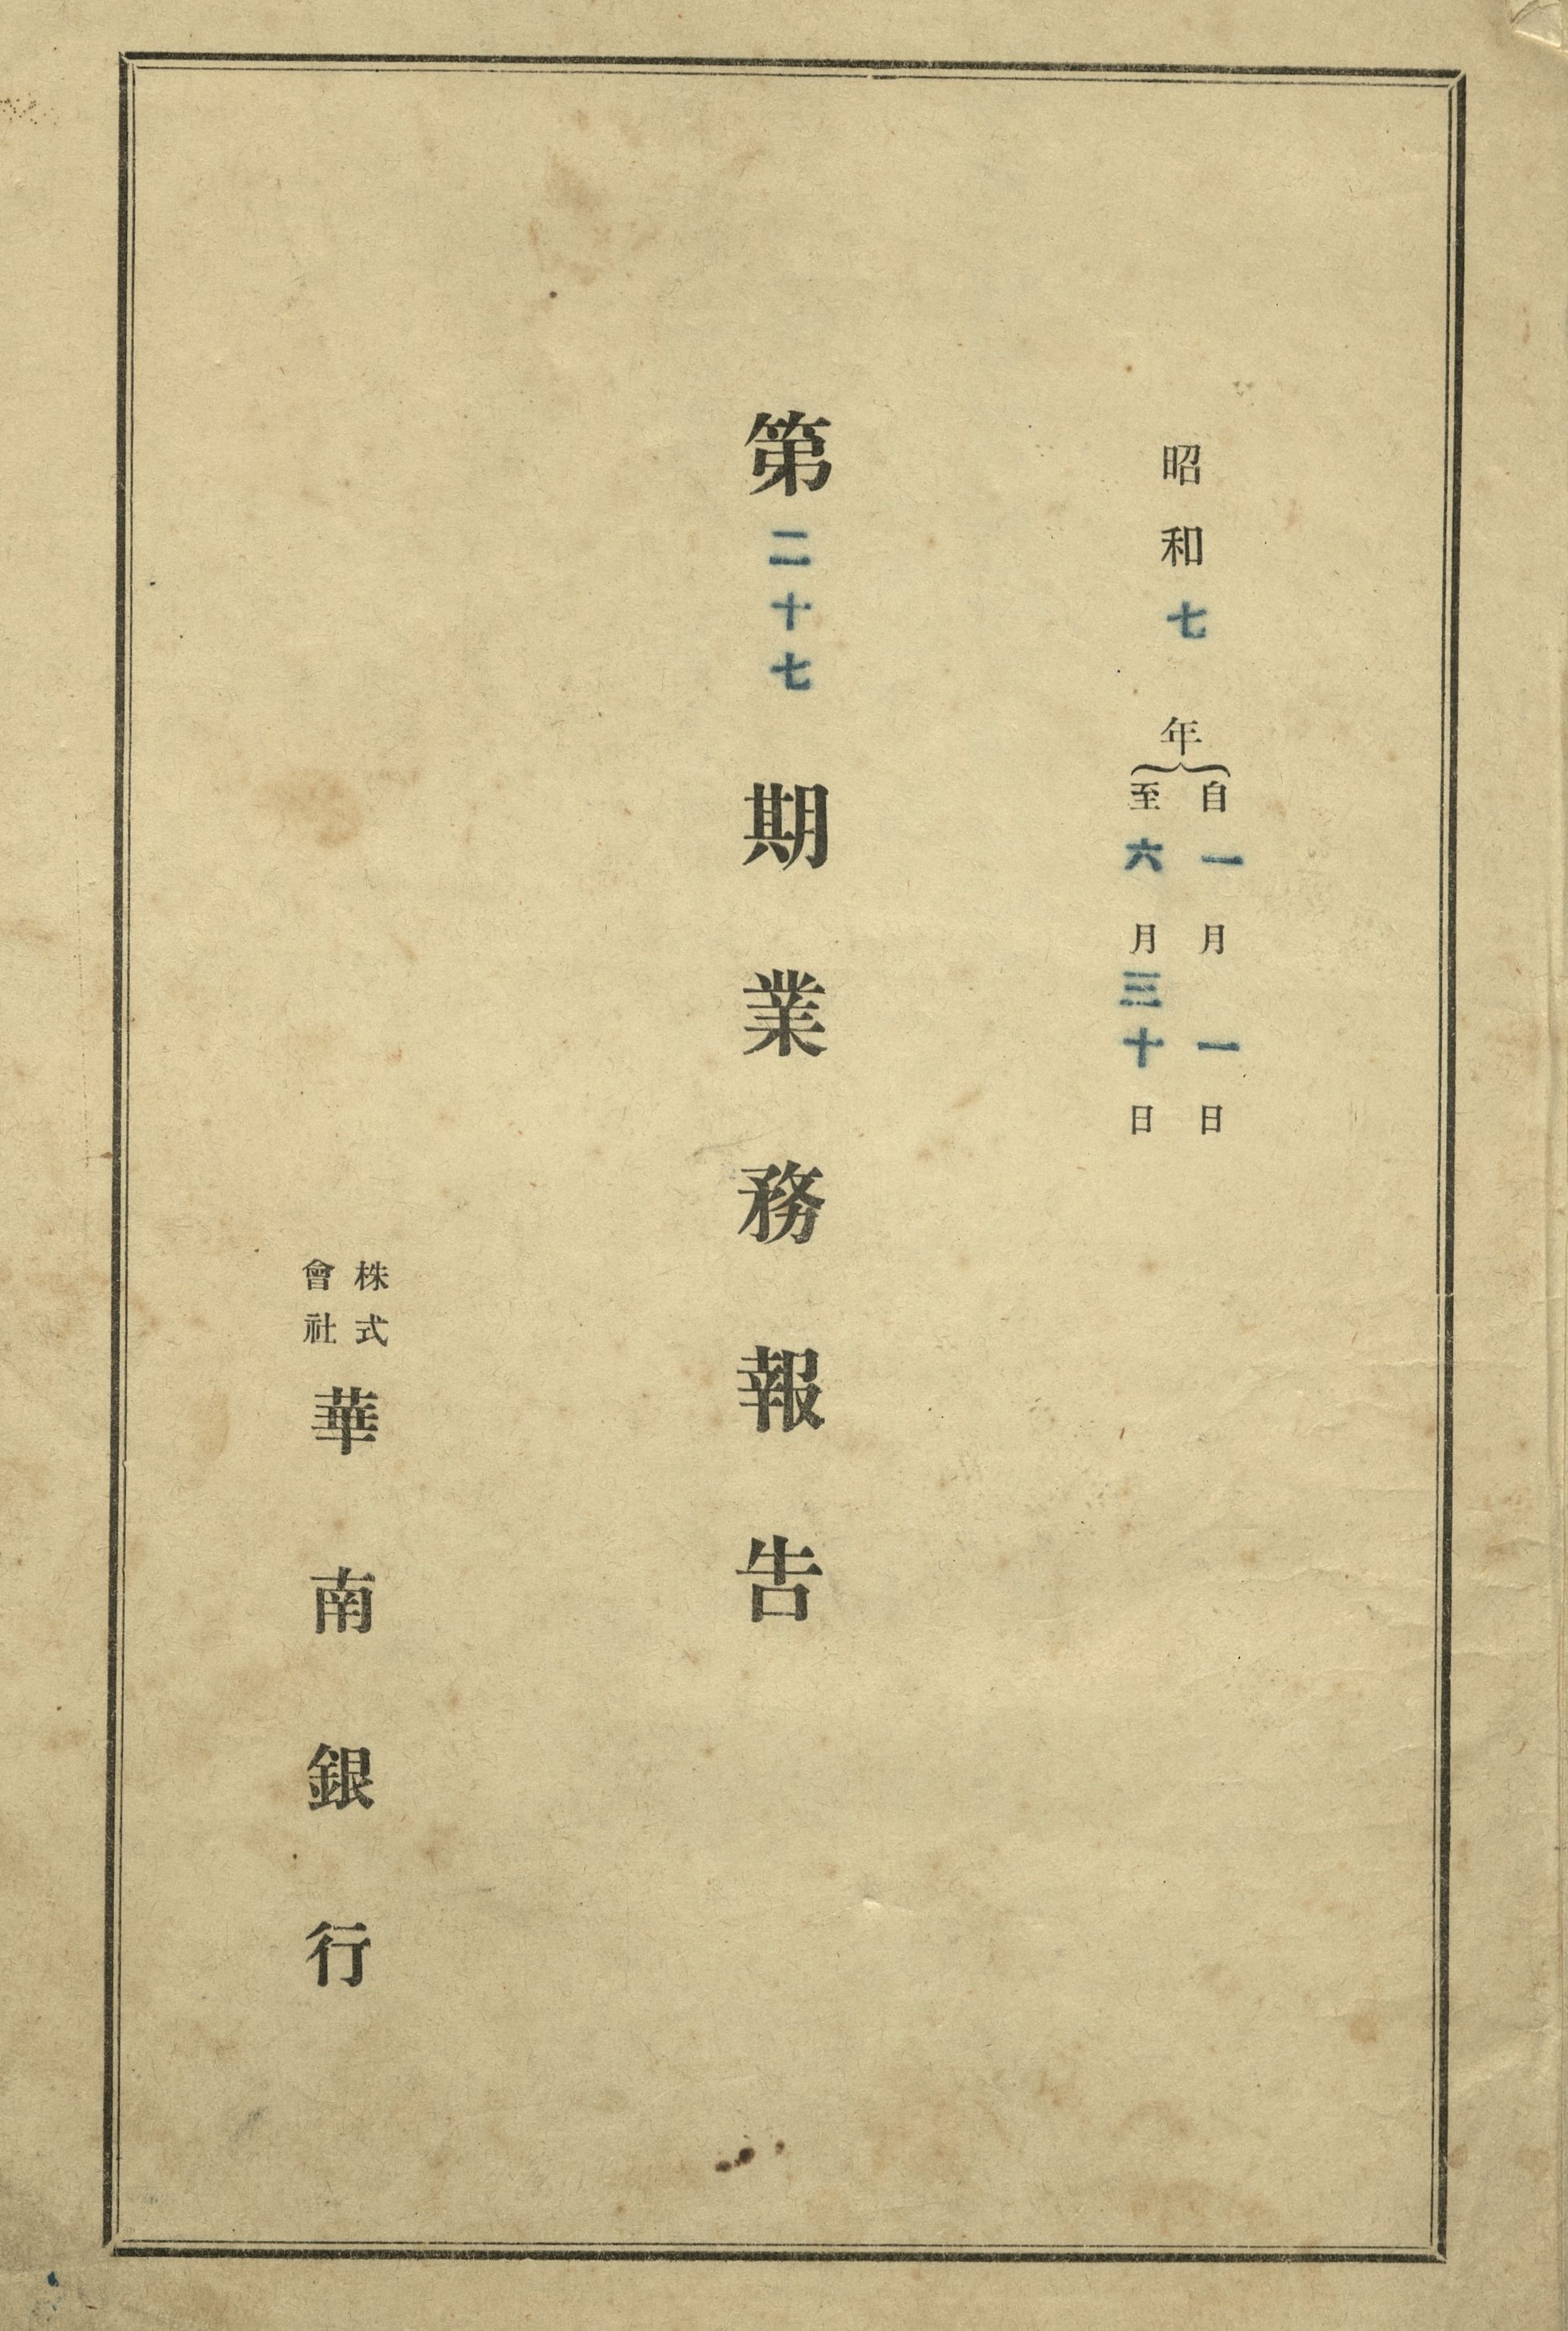 昭和七年
自一月一日
至六月三十日
第二十七期業務報告
株式
會社
華南銀行